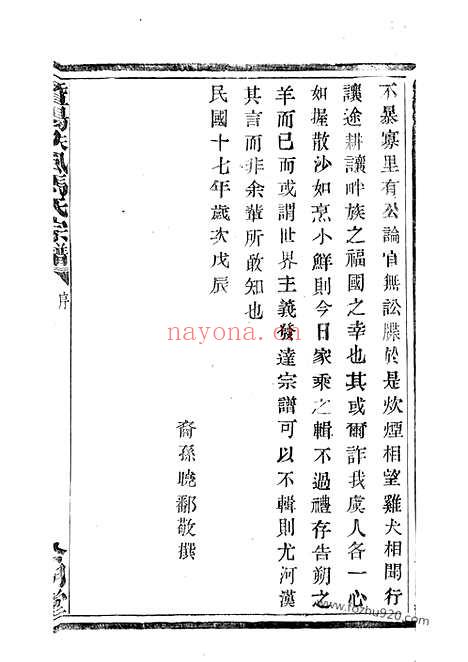 不暴寡里有公論自無訟牒於是炊煙相望雞犬相聞行
讓途耕讓畔族之福國之幸也其或爾詐我虞人各一心
如握散沙如烹小鮮則今日家乘之輯不過禮存告朔之
羊而已而或謂世界主義發達宗譜可以不輯則尤河漢
其言而非余輩所敢知也
民國十七年歲次戊辰
裔孫曉鄱敬撰
暨陽扶風馬氏宗譜
序
nayona.cn
www.fozhu920.com